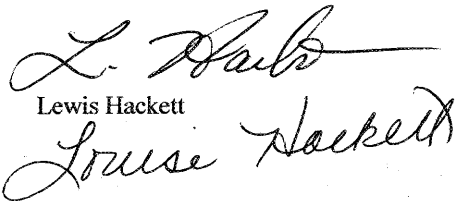 L. Hackett
Lewis Hackett
Louise Hackett